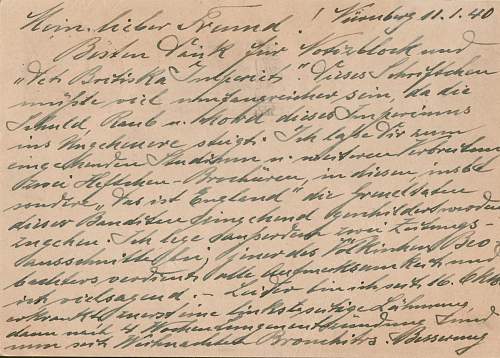 Mein lieber Freund! Nürnberg 11.1.40
Besten Dank für Notizblock und
„Det Brittiska Imperiet". Dieses Schriftchen
müßte viel umfangreicher sein, da die
Schuld, Raub u. Mord dieses Imperiums
ins Ungeheuere steigt. Ich laße Dir zum
eingehenden Studium u. weiteren Verbreiten
zwei Heftchen-Brochüren, in diesen, insbe
sondere „Das ist England" die Greueltaten
dieser Banditen eingehend geschildert werden
zugehen. Ich lege außerdem zwei Zeitungs-
ausschnitte bei, einer des Völkischen Beo
bachters verdient alle Aufmerksamkeit und
ist vielsagend. - Leider bin ich seit 16. Okt.
erkrankt, zuerst eine linksseitige Lähmung,
dann mit 4 Wochen Lungenentzündung und
nun seit Weihnachten Bronchitis. Besserung